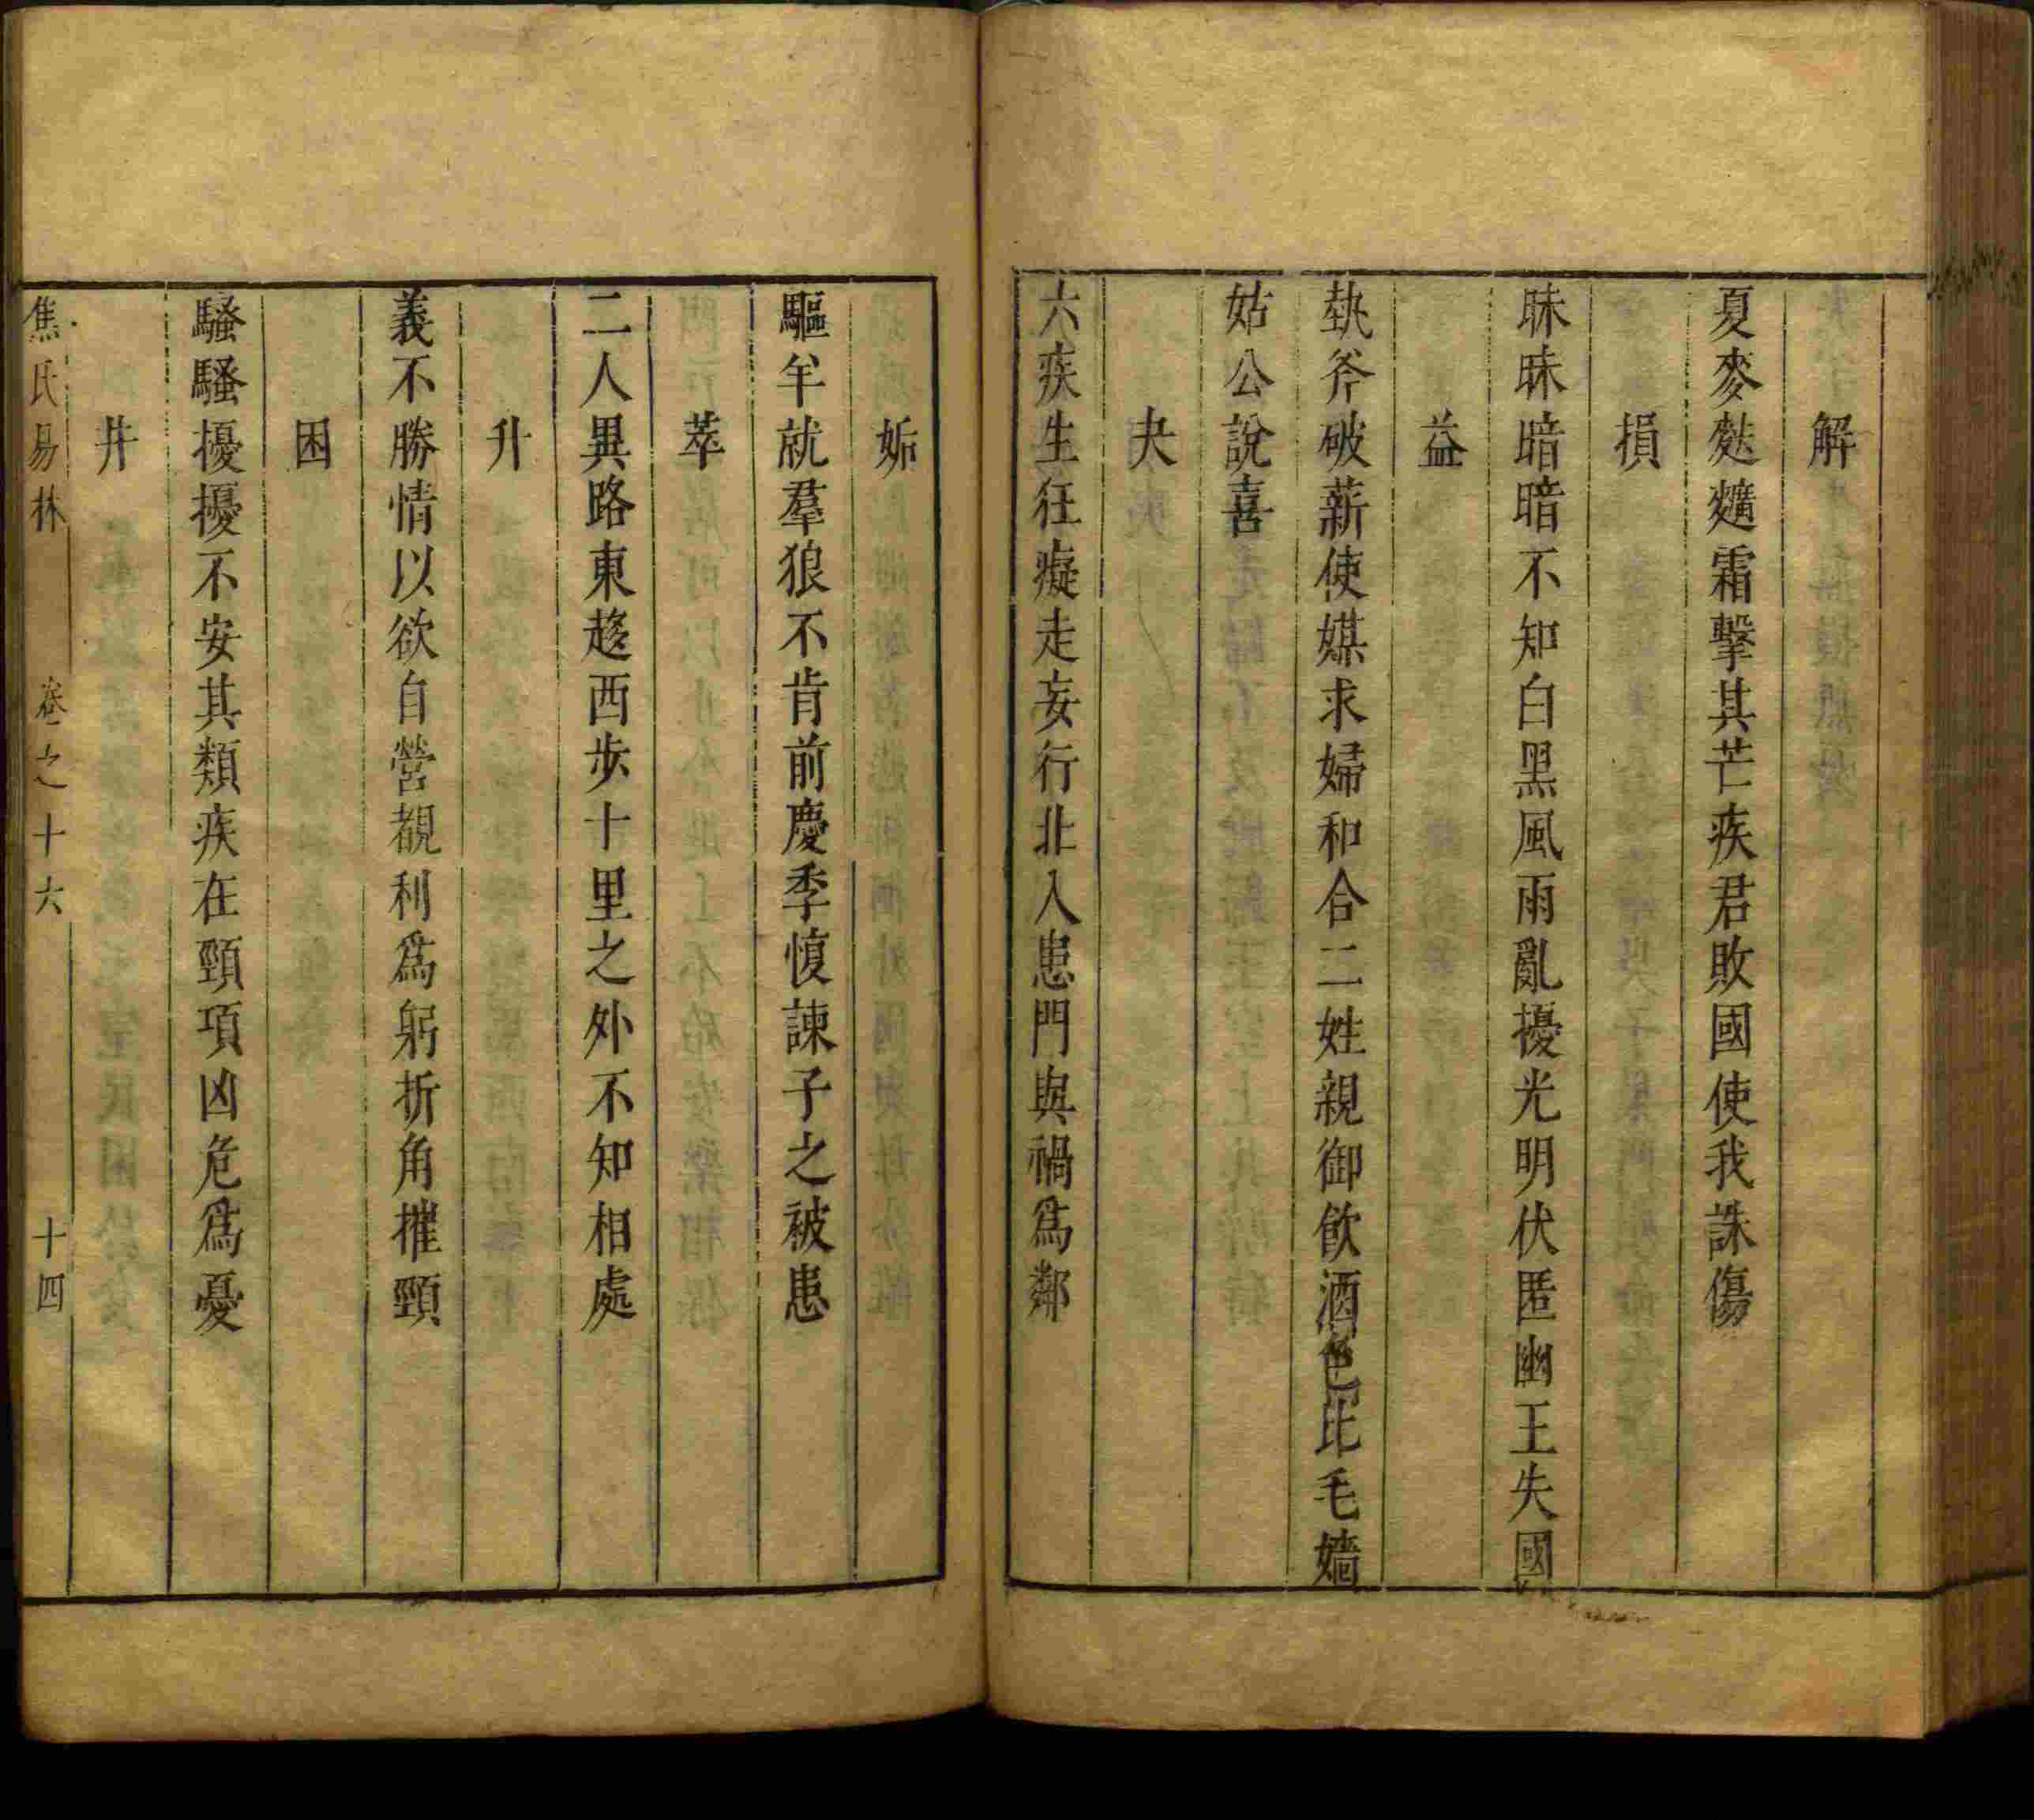 解
夏麥麩䴢霜擊其芒疾君敗國使我誅傷
損
昧昧暗暗不知白黑風雨亂擾光明伏匿幽王失國
益
執斧破薪使媒求婦和合二姓親御飲酒色比毛嬙
姑公說喜
夬
六疾生狂癡走妄行北入患門與禍爲鄰
姤
驅羊就羣狼不肯前慶季愎諫子之被患
萃
二人異路東趍西步十里之外不知相處
升
義不勝情以欲自營覩利爲躬折角摧頸
困
騷騷擾擾不安其類疾在頸項凶危爲憂
井
焦氏易林 卷之十六 十四